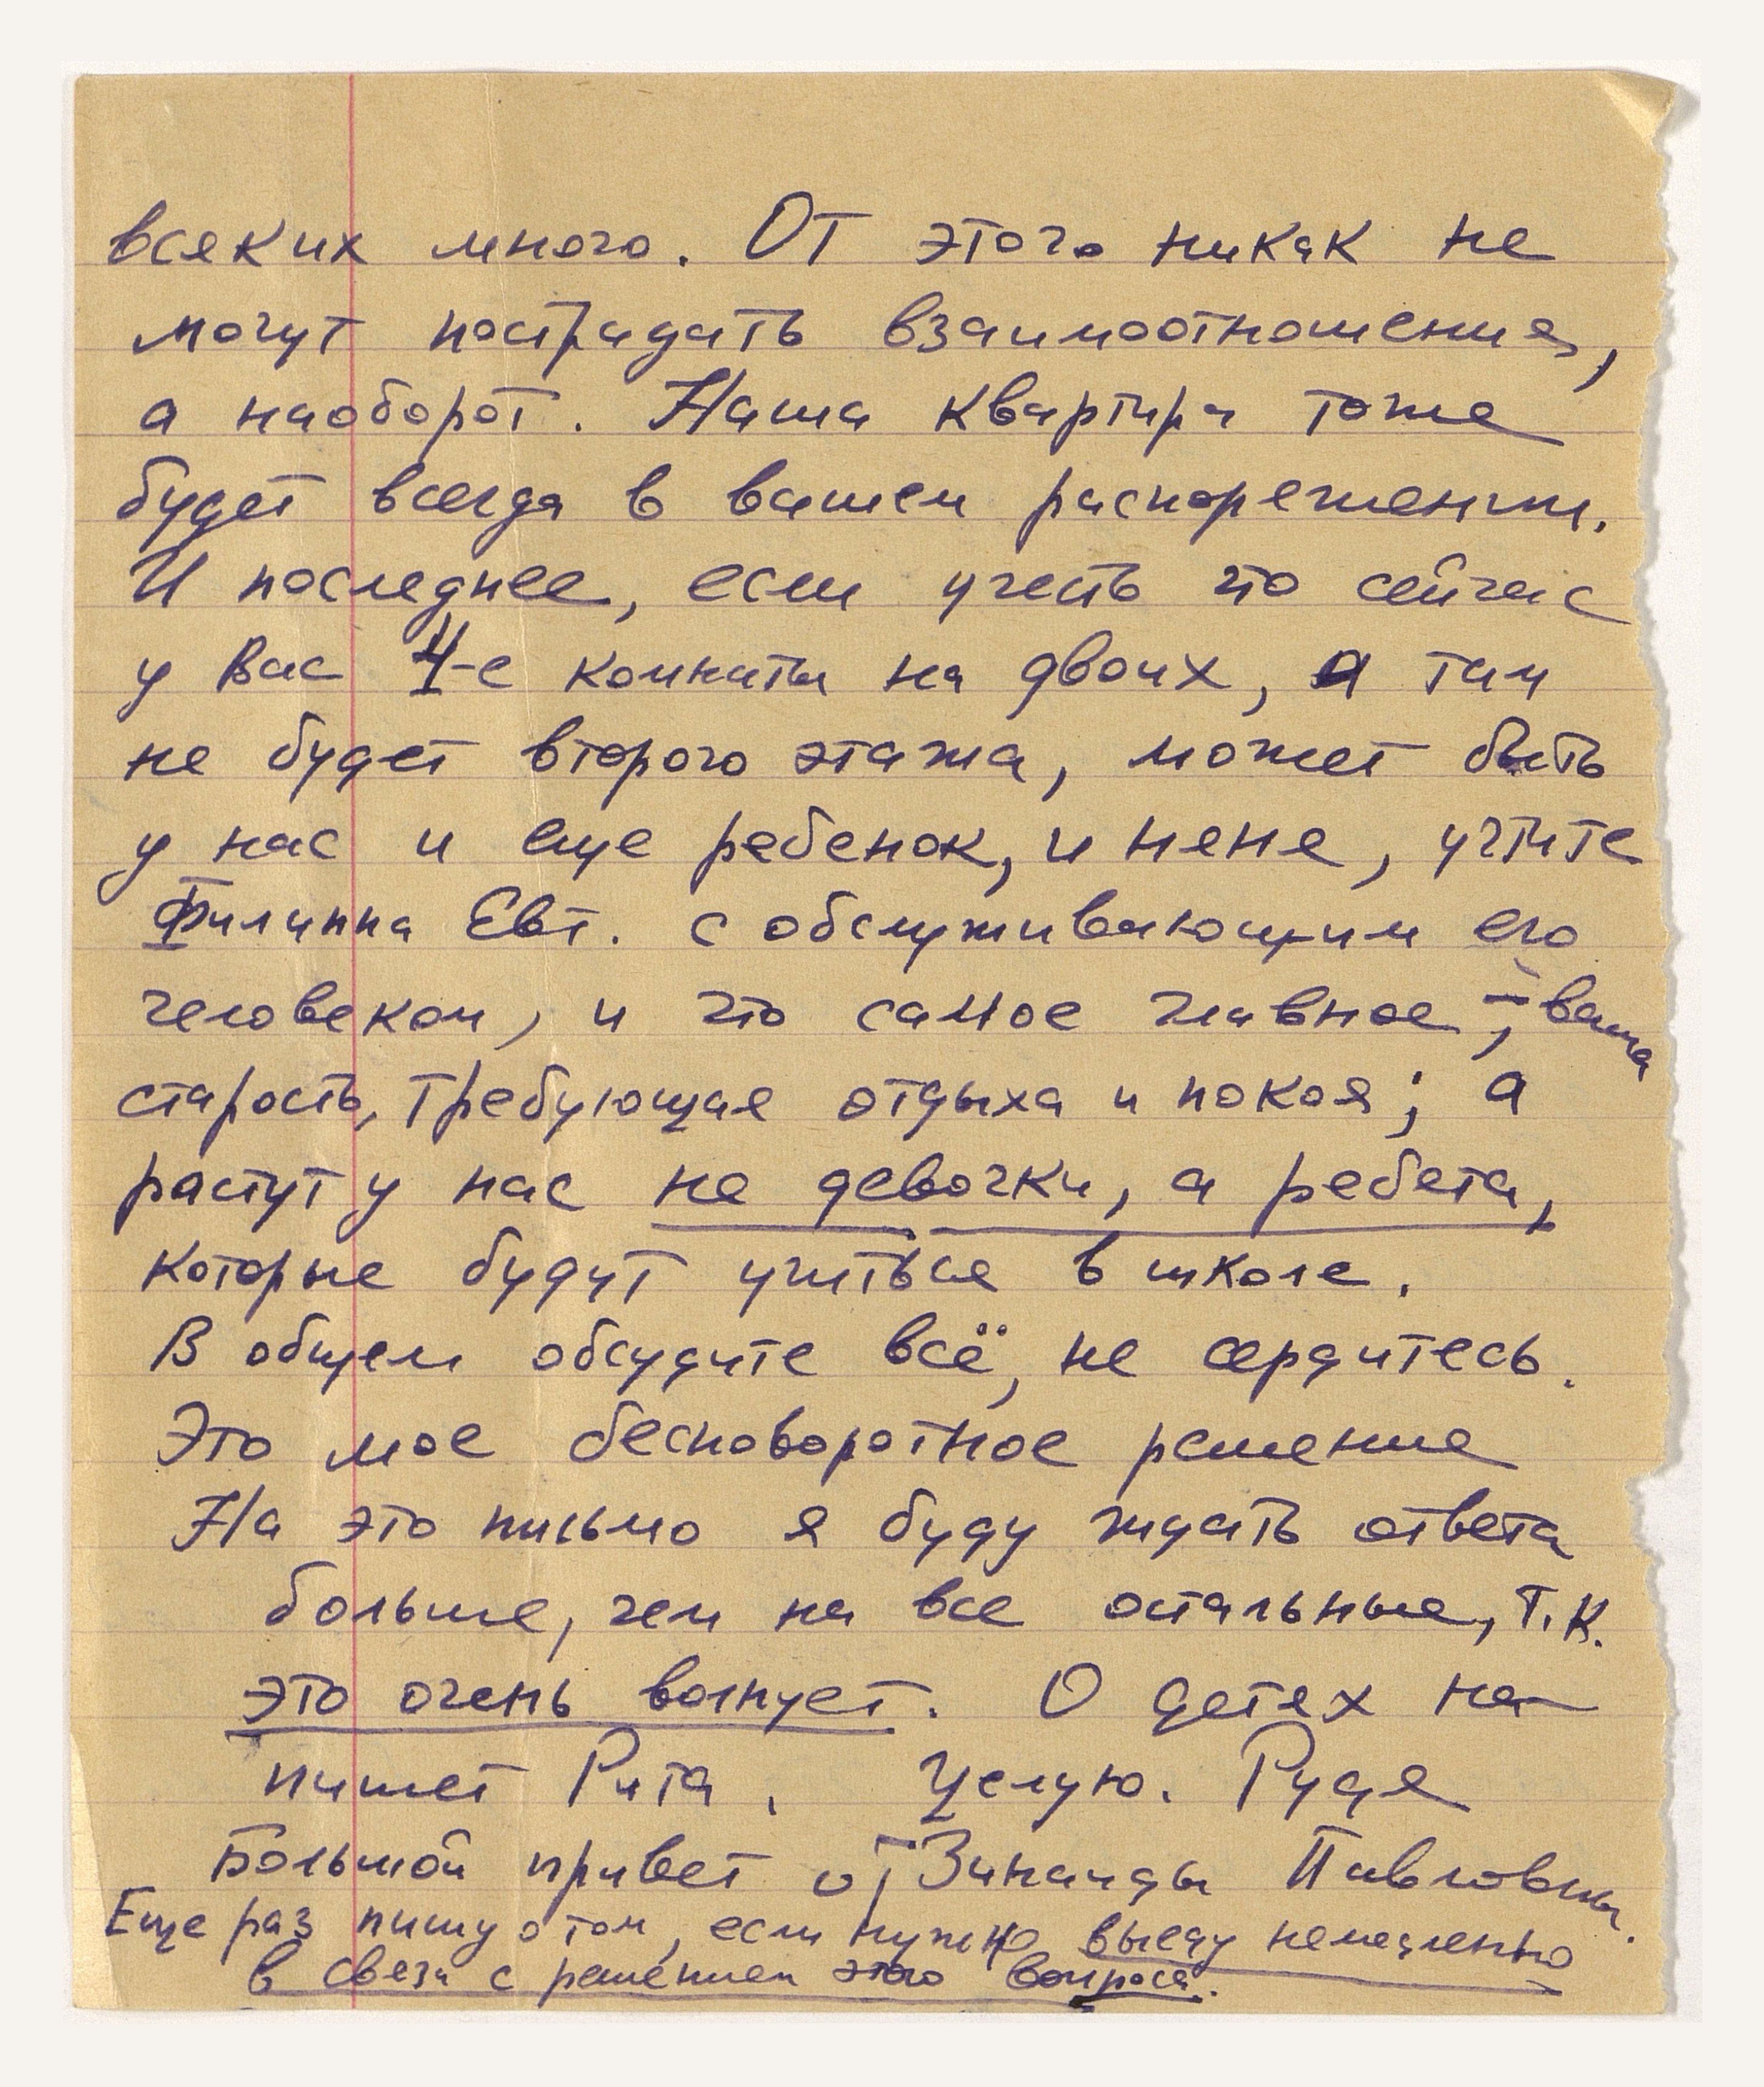 всяких много. От этого никак не
могут пострадать взаимоотношения,
а наоборот. Наша квартира тоже
будет всегда в вашем распоряжении.
И последнее, если учесть что сейчас
у Вас 4-е комнаты на двоих, а там
не будет второго этажа, может быть
у нас и еще ребенок, и няня, учтите
Филиппа Евт. с обслуживающим его
человеком, и что самое главное –, ваша
старость, требующая отдыха и покоя; а
растут у нас не девочки, а ребята,
которые будут учиться в школе.
В общем обсудите всё, не сердитесь.
Это мое бесповоротное решение
На это письмо я буду ждать ответа
больше, чем на все остальные, т.к.
это очень волнует. О детях на-
пишет Рита. Целую. Рудя
Большой привет от Зинаиды Павловны.
Еще раз пишу о том, если нужно выеду немедленно
в связи с решением этого вопроса.